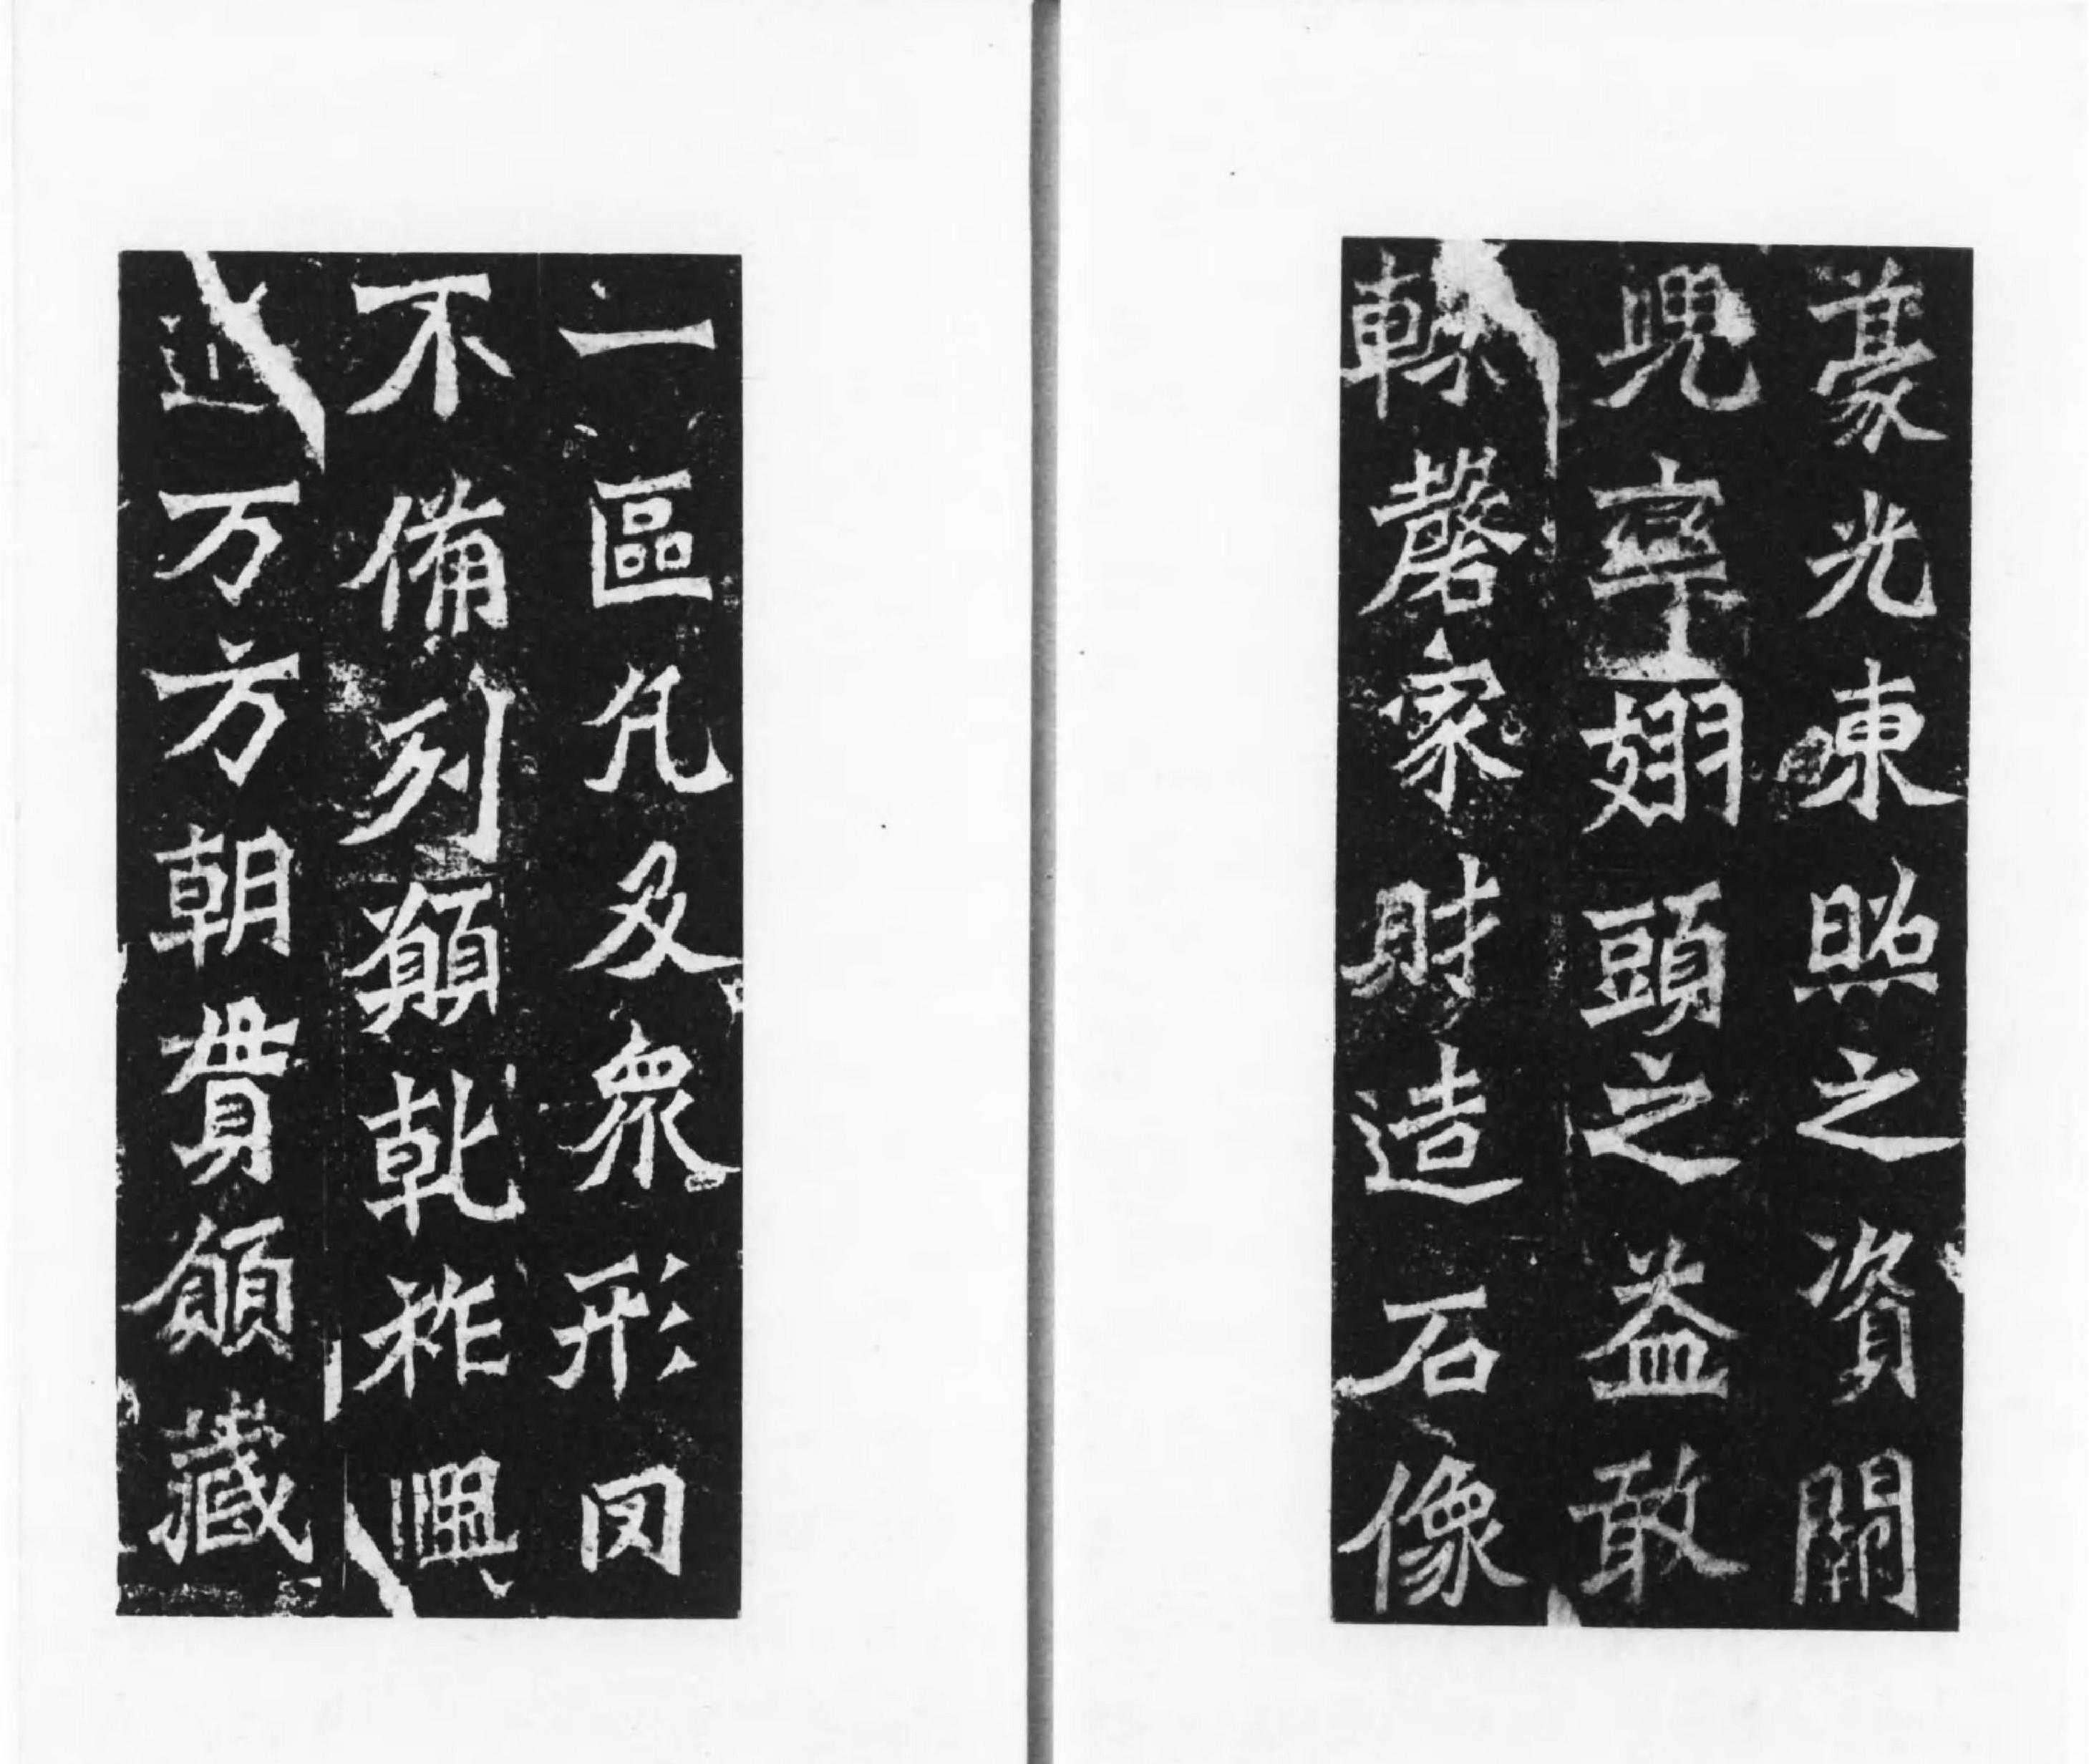 豪光東照之資闕
兜率翅頭之益敢
輒磬家財造石像
一區凡及衆形罔
不備列願乾祚興
延万方朝貫願藏